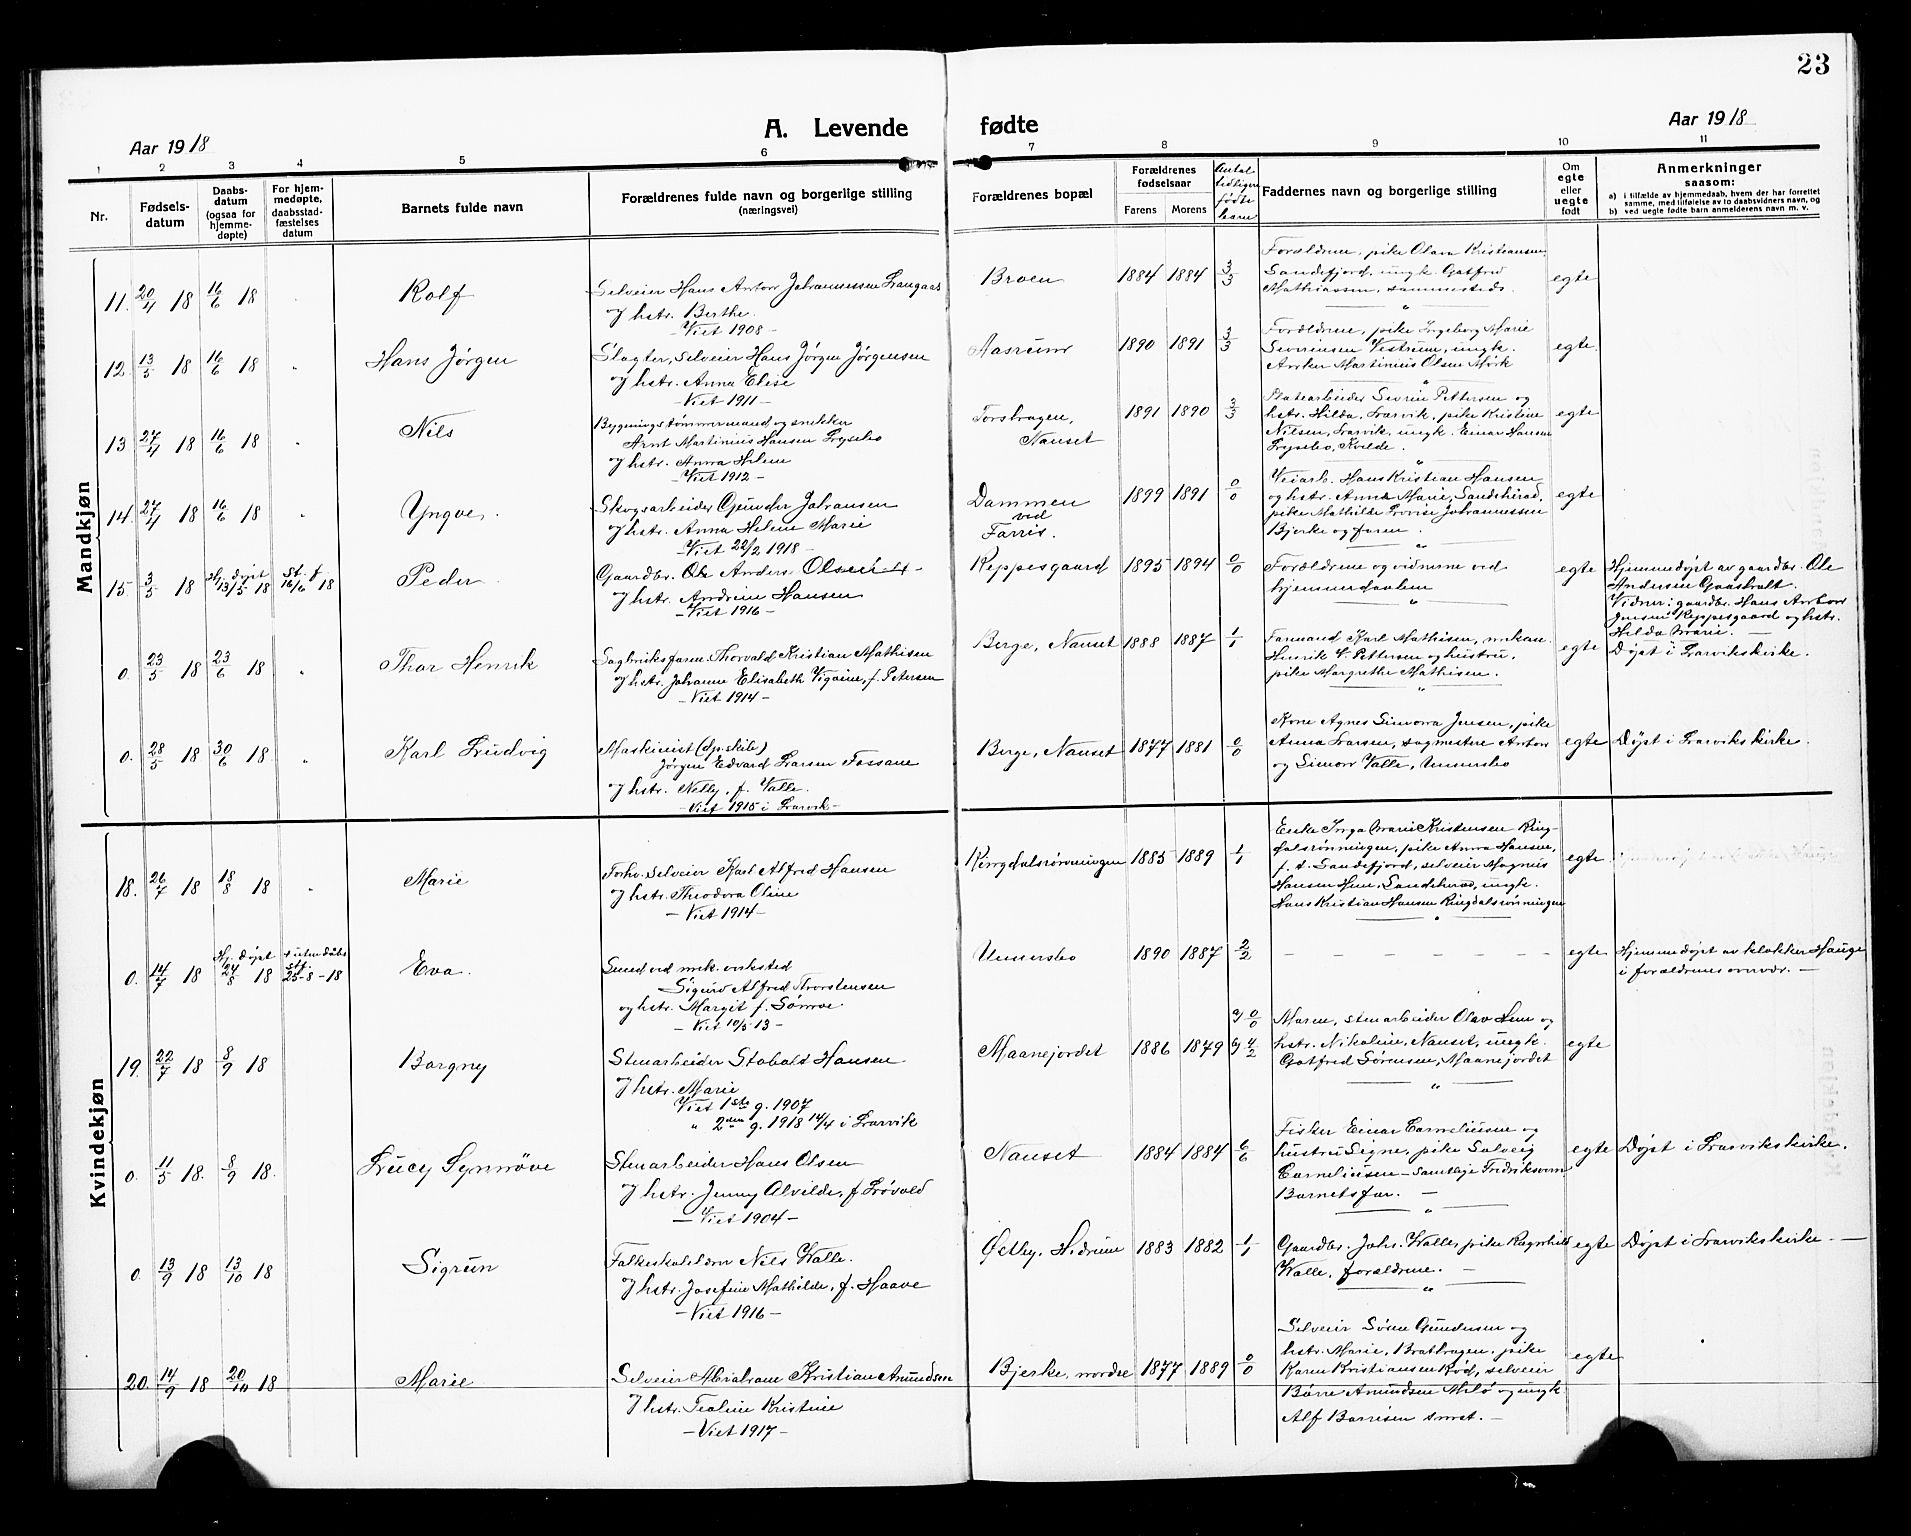 23
Aar 1918
A. Levende fødte
Aar 1918
1 2 3 4 5 6 7 8 9 10 11
Nr.
Fødsels-
datum
Daabs-
datum
(ogsaa for
hjemme-
døpte)
For hjem-
medøpte,
daabsstad-
fæstelses
datum
Barnets fulde navn
Forældrenes fulde navn og borgerlige stilling
(næringsvei)
Forældrenes bopæl
Forældrenes
fødselsaar
Farens Morens
Antal
tidligere
fødte
barn
Faddernes navn og borgerlige stilling
Om
egte
eller
uegte
født
Anmerkninger
saasom:
a) i tilfælde av hjemmedaab, hvem der har forrettet
samme, med tilføielse av to daabsvidners navn, og
b) ved uegte fødte barn anmelderens navn m. v.
Mandkjøn
11. 20/4 18 16/6 18 Rolf
Selveier Hans Anton Johannessen
og hstr. Berthe.
– Viet 1908 –
Broen 1884 1884 3/3
Forældrene, pike Olava Kristiansen,
Sandefjord, ungk. Gotfred
Mathiassen, sammesteds.
egte
12. 13/5 18 16/6 18 „ Hans Jørgen
Slagter, selveier Hans Jørgen Jørgensen
og hstr. Anna Elise
– Viet 1911 –
Aasrum 1890 1891 3/3
Forældrene, pike Ingeborg Marie
Severinsen Vestrum, ungk.
Anker Martinius Olsen Mørk
egte
13. 27/4 18 16/6 18 „ Nils
Bygningstømmermand og snekker
Arnt Martinius Hansen Lysebo
og hstr. Anna Helene
– Viet 1912 –
Torstvagen,
Nanset
1891 1890 3/3
Severin Pettersen og
hstr. Hilda, Larvik, pike Kristine
Nilsen, Larvik, ungk. Einar Hansen
Lysebo, Kvelde.
egte
14. 27/4 18 16/6 18 „ Yngve.
Skogsarbeider Gunder Johansen
og hstr. Anna Helene Marie
– Viet 22/2 1918 –
Dammen
ved
Farris.
1899 1891 0/0
Veiarb. Hans Kristian Hansen
og hstr. Anna Marie, Sandeherad,
pike Mathilde Lovise Johannessen
Bjerke og faren.
egte
15. 3/5 18 Hj. døpt 13/5 18 St. f. 16/6 18 Peder
Gaardbr. Anders Olsen
og hstr. Andrine Hansen
– Viet 1916 –
Reppesgaard 1895 1894 0/0
Forældrene og vidnene ved
hjemmedaaben
egte
Hjemmedøpt av gaardbr. Ole
Andersen Gaasholt.
Vidner: gaardbr. Hans Anton
Jensen Reppesgaard og hstr.
Hilda Marie. –
0. 23/5 18 23/6 18 „ Thor Henrik
Sagbruksform. Thorvald Kristian Mathisen
og hstr. Johanne Elisabeth Vigaine, f. Petersen
– Viet 1914 –
Berge, Nanset 1888 1887 1/1
Formand Karl Mathisen, mekan.
Henrik V. Pettersen og hustru,
pike Margrethe Mathisen.
egte
Døpt i Larviks kirke.
0. 28/5 18 30/6 18 „ Karl Ludvig
Maskinist (dp.skib)
Jørgen Edvard Larsen Fossane
og hstr. Nelly, f. Valle.
– Viet 1915 i Larvik –
Berge, Nanset 1877 1881 0/0
Kone Agnes Simorra Jensen, pike
Anna Larsen, sagmestere Anton
og Simon Valle, Unnersbo
egte
Døpt i Larviks kirke.
Kvindekjøn
18. 26/7 18 18/8 18 „ Marie
Forhv. selveier Karl Alfred Hansen
og hstr. Theodora Oline
– Viet 1914 –
Ringdalsrønningen 1885 1889 1/1
Enke Inga Marie Kristensen Ring-
dalsrønningen, pike Anna Hansen,
f. t. Sandefjord, selveier Magnus
Hansen Hem, Sandeherad, ungk.
Hans Kristian Hansen Ringdalsrønningen
egte
0. 14/7 18 Hj. døpt 24/8 18 stf. 25-8-18 Eva.
Smed ved mek. verksted
Sigurd Alfred Thorstensen
og hstr. Margit f. Sømoe.
– Viet 10/5 13 –
Unnersbo 1890 1887 2/2
egte
Hjemmedøpt av klokker Hauge
i forældrenes overvær. –
19. 22/7 18 8/9 18 Borgny
Stenarbeider Stobald Hansen
og hstr. Marie
Viet 1ste g. 1907
„ 2den g. 1918 14/4 i Larvik
Maanejordet 1886 1879 0/0 4/2
Moren, stenarbeider Olav Hem og
hstr. Nikoline, Nanset, ungk.
Gotfred Sørensen, Maanejordet
egte
0. 11/5 18. 8/9 18. Lucy Synnøve
Stenarbeider Hans Olsen
og hstr. Jenny Alvilde, f. Løvold
– Viet 1904 –
Nanset 1884 1884 6/6
Fisker Einar Corneliussen og
hustru Signe, pike Solveig
Corneliussen – samtlige Fredriksvern
Barnets far. –
egte
Døpt i Larviks kirke.
0. 13/9 18 13/10 18 Sigrun
Folkeskolelærer Nils Walle.
og hstr. Josefine Mathilde, f. Haave
– Viet 1916 –
Østby, Hedrum 1883 1882 1/1
Gaardbr. Johs. Walle, pike Ragnhild
Walle, forældrene. –
egte
Døpt i Larviks kirke –
20. 14/9 18 20/10 18 Marie
Selveier Abraham Kristian Amundsen
og hstr. Teoline Kristine
– Viet 1917 –
Bjerke, nordre 1877 1889 0/0
Selveier Søren Gundersen og
hstr. Marie, Brathagen, pike
Karen Kristiansen Rød, selveier
Børre Amundsen Milø og ungk.
Alf Borresen smst. –
egte